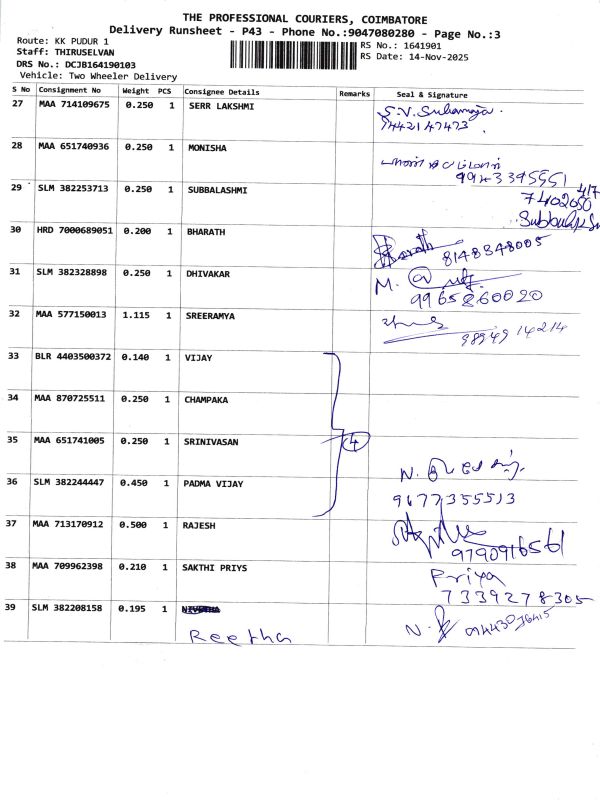 THE PROFESSIONAL COURIERS, COIMBATORE
Delivery Runsheet - P43 - Phone No.:9047080280 - Page No.:3
Route: KK PUDUR 1
Staff: THIRUSELVAN
DRS No.: DCJB164190103
Vehicle: Two Wheeler Delivery
RS No.: 1641901
RS Date: 14-Nov-2025
S No Consignment No Weight PCS Consignee Details Remarks Seal & Signature
27 MAA 714109675 0.250 1 SERR LAKSHMI
7442147473
28 MAA 651740936 0.250 1 MONISHA
29 SLM 382253713 0.250 1 SUBBALASHMI
417
7402050
30 HRD 7000689051 0.200 1 BHARATH
8148348005
31 SLM 382328898 0.250 1 DHIVAKAR
M.
9965260020
32 MAA 577150013 1.115 1 SREERAMYA
98949 14214
33 BLR 4403500372 0.140 1 VIJAY
34 MAA 870725511 0.250 1 CHAMPAKA
35 MAA 651741005 0.250 1 SRINIVASAN
4
36 SLM 382244447 0.450 1 PADMA VIJAY
N.
9677355513
37 MAA 713170912 0.500 1 RAJESH
9790916561
38 MAA 709962398 0.210 1 SAKTHI PRIYS
Priya
7339278305
39 SLM 382208158 0.195 1
Reetha
N.